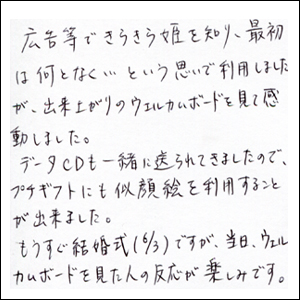 広告等できらきら姫を知り、最初
は何となく… という思いで利用しました
が、出来上がりのウェルカムボードを見て感
動しました。
データCDも一緒に送られてきましたので、
プチギフトにも似顔絵を利用すること
が出来ました。
もうすぐ結婚式(6/3)ですが、当日、ウェル
カムボードを見た人の反応が楽しみです。